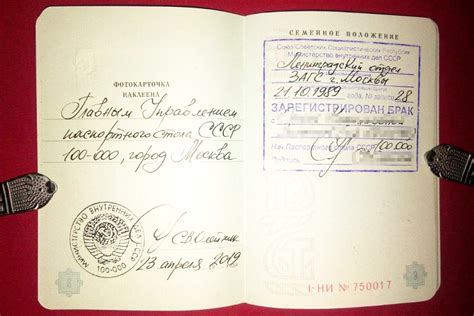 ФОТОКАРТОЧКА
НАКЛЕЕНА
Главным Управлением
паспортного стола СССР
100-000, город Москва
МИНИСТЕРСТВО ВНУТРЕННИХ ДЕЛ СССР
100-000
С.В.Олейник
23 апреля 2019
СЕМЕЙНОЕ ПОЛОЖЕНИЕ
Союз Советских Социалистических Республик
Министерство внутренних дел СССР
Ленинградский отдел
ЗАГС г. Москвы
21.10.1989 года, № 28
ЗАРЕГИСТРИРОВАН БРАК
с
Нач. Паспортного стола СССР 100.000
I-НИ № 750017